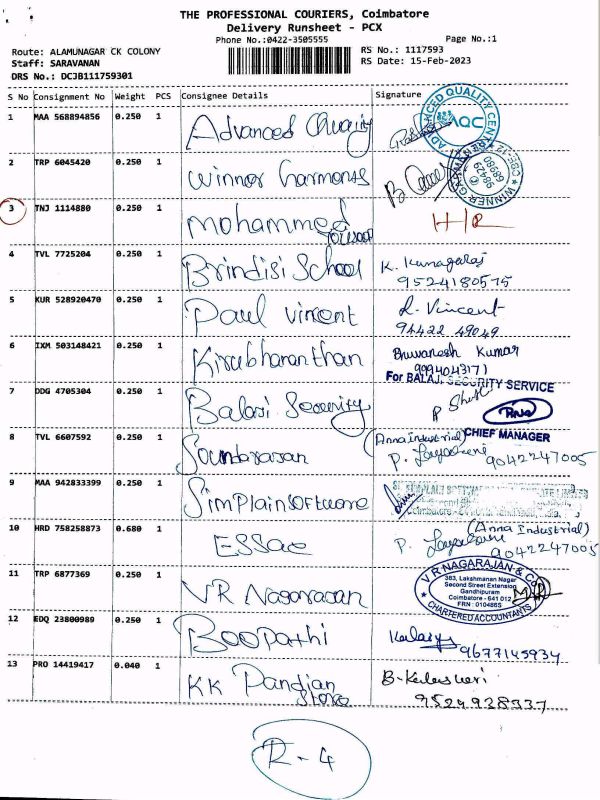 THE PROFESSIONAL COURIERS, Coimbatore
Delivery Runsheet - PCX
Phone No.:0422-3505555
Page No.:1
Route: ALAMUNAGAR CK COLONY
Staff: SARAVANAN
DRS No.: DCJB111759301
RS No.: 1117593
RS Date: 15-Feb-2023
S No Consignment No Weight PCS Consignee Details Signature
1 MAA 568894856 0.250 1 Advanced Quality
ADVANCED QUALITY CENTRE AQC
2 TRP 6045420 0.250 1 Winner harmons
WINNER GARMENTS CBE-12 98429 68980
3 TNJ 1114880 0.250 1 Mohammed H/R
4 TVL 7725204 0.250 1 Brindisi School K. Kanagaraj
9524180575
5 KUR 528920470 0.250 1 Paul Vincent L. Vincent
94422 49049
6 IXM 503148421 0.250 1 Kirubharanthan Bhuvanesh Kumar
9994043171
For BALAJI SECURITY SERVICE
7 DDG 4705304 0.250 1 Balaji Security
CHIEF MANAGER
8 TVL 6607592 0.250 1 Soundarasan (Anna industrial)
P. 9042247005
9 MAA 942833399 0.250 1 Simplainsoftware
10 HRD 758258873 0.680 1 ESSae (Anna Industrial)
P. 9042247005
11 TRP 6877369 0.250 1 VR Nagarasan
V R NAGARAJAN & CO
383, Lakshmanan Nagar
Second Street Extension
Gandhipuram
Coimbatore - 641 012
FRN : 010486S
CHARTERED ACCOUNTANTS
12 EDQ 23800989 0.250 1 Boopathi
9677145934
13 PRO 14419417 0.040 1 KK Pandian
Store
9524928337
R-4